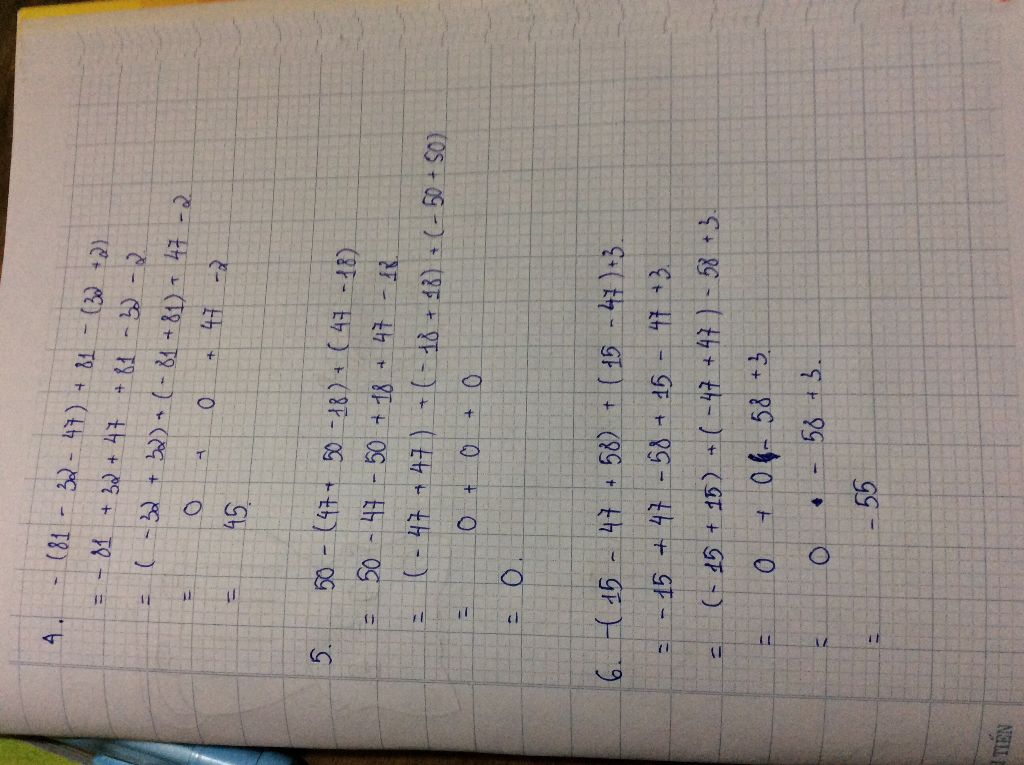 4. - (81 - 32 - 47) + 81 - (32 + 2)
= - 81 + 32 + 47 + 81 - 32 - 2
= ( - 32 + 32) + (- 81 + 81) + 47 - 2
= 0 + 0 + 47 - 2
= 45.
5. 50 - (47 + 50 - 18) + (47 - 18)
= 50 - 47 - 50 + 18 + 47 - 18
= (- 47 + 47) + (- 18 + 18) + (- 50 + 50)
= 0 + 0 + 0
= 0.
6. -(15 - 47 + 58) + (15 - 47) + 3
= - 15 + 47 - 58 + 15 - 47 + 3
= (- 15 + 15) + (- 47 + 47) - 58 + 3.
= 0 + 0 - 58 + 3
= 0 - 58 + 3.
= - 55
TIẾN